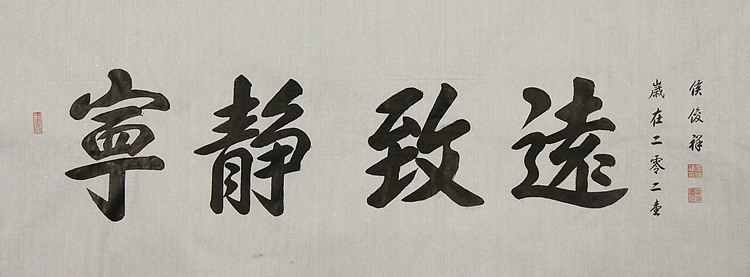 寧静致遠
嵗在二零二壹
侯俊祥